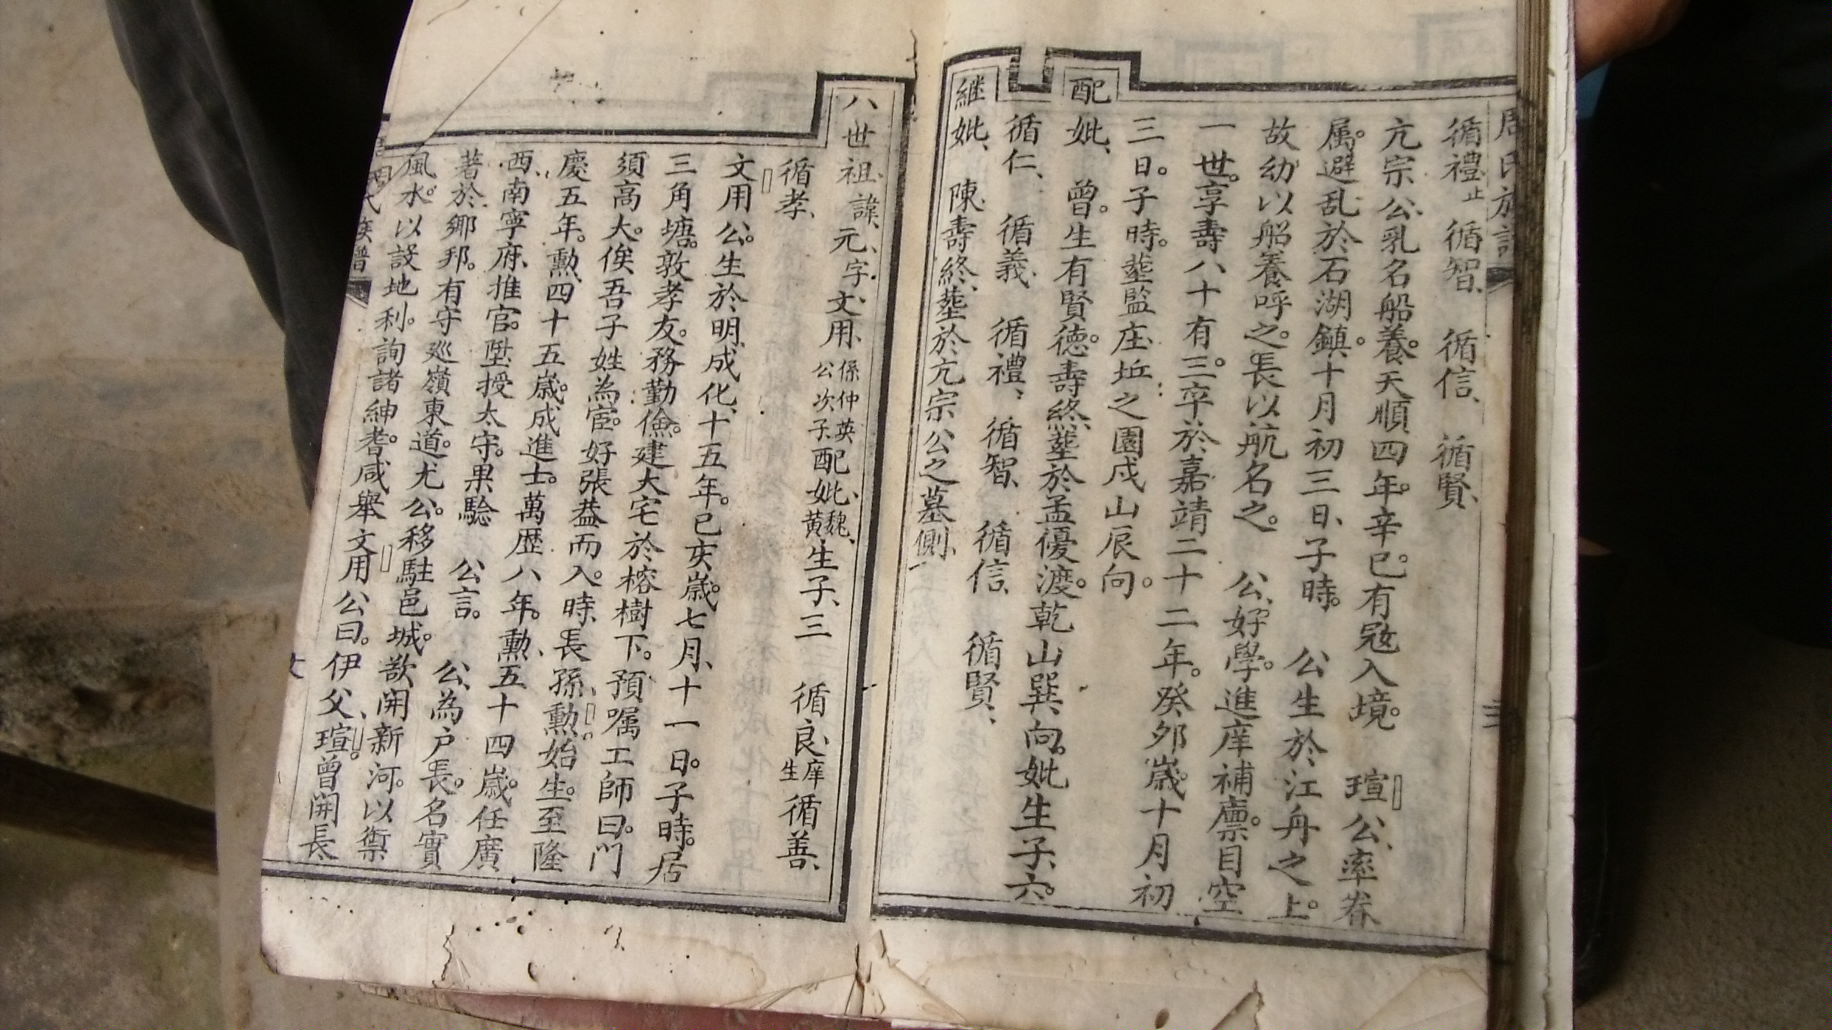 周氏族譜
循禮止 循智、 循信、 循賢、
亢宗公乳名船養。天順四年。辛巳。有寇入境。 瑄公、率眷
属。避乱於石湖鎮。十月初三日、子時。 公生於江舟之上。
故幼以船養呼之。長以航名之。 公、好學。進庠補廪。目空
一世。享壽八十有三。卒於嘉靖二十二年。癸夘歲。十月初
三日。子時。塟監庄坵之園戍山辰向。
配妣、 曾。生有賢德。壽終、塟於孟優渡。乾山巽向。妣生子、六。
循仁、 循義、 循禮、 循智、 循信、 循賢、
継妣、 陳、壽終、塟於亢宗公之墓側、
八世祖、諱、元、字、文、用、係仲英公次子、配妣、魏、黄、生子、三 循良、庠生 循善、
循孝、
文用公。生於明、成化、十五年。已亥歲。七月、十一日。子時。居
三角塘。敦孝友。務勤儉。建大宅於榕樹下。預嘱工師曰。門
須高大。俟吾子姓為宦。好張葢而入。時、長孫、勲。始生。至隆
慶五年。勲、四十五歲。成進士。萬歷八年。勲、五十四歲。任廣
西、南寧府、推官。陞授太守。果驗 公言。 公、為户長。名實
著於鄉邦。有守廵嶺東道。尤公。移駐邑城。欲開新河。以禦
風水。以設地利。詢諸紳耆。咸舉文用公曰。伊父、瑄。曾開長
周氏族譜